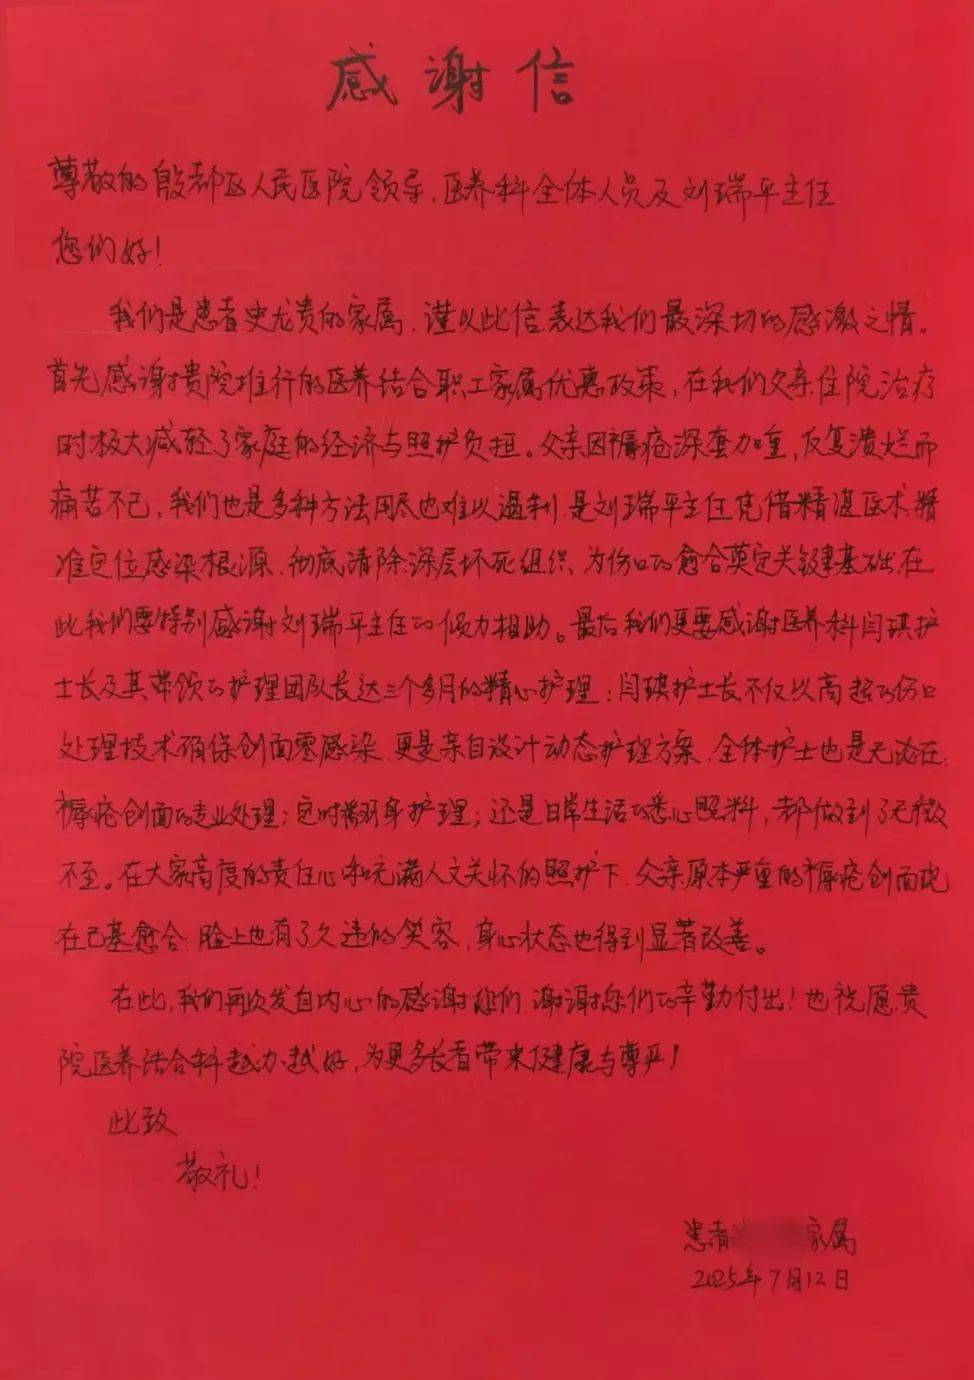 感谢信
尊敬的殷都区人民医院领导、医养科全体人员及刘瑞平主任
您们好！
我们是患者史尤贵的家属，谨以此信表达我们最深切的感激之情。
首先感谢贵院推行的医养结合职工家属优惠政策，在我们父亲住院治疗
时极大减轻了家庭的经济与照护负担。父亲因褥疮深套加重，反复溃烂而
痛苦不已，我们也是多种方法用尽也难以遏制，是刘瑞平主任凭借精湛医术，精
准定位感染根源，彻底清除深层坏死组织，为伤口的愈合奠定关键基础，在
此我们要特别感谢刘瑞平主任的倾力相助。最后我们更要感谢医养科闫琪护
士长及其带领的护理团队长达三个多月的精心护理：闫琪护士长不仅以高超的伤口
处理技术确保创面零感染，更是亲自设计动态护理方案，全体护士也是无论在
褥疮创面的专业处理；定时翻身护理；还是日常生活的悉心照料，都做到了无微
不至。在大家高度的责任心和充满人文关怀的照护下，父亲原本严重的褥疮创面现
在已基愈合，脸上也有了久违的笑容，身心状态也得到显著改善。
在此，我们再次发自内心的感谢您们，谢谢您们的辛勤付出！也祝愿贵
院医养结合科越办越好，为更多长者带来健康与尊严！
此致
敬礼！
患者 家属
2025年7月12日